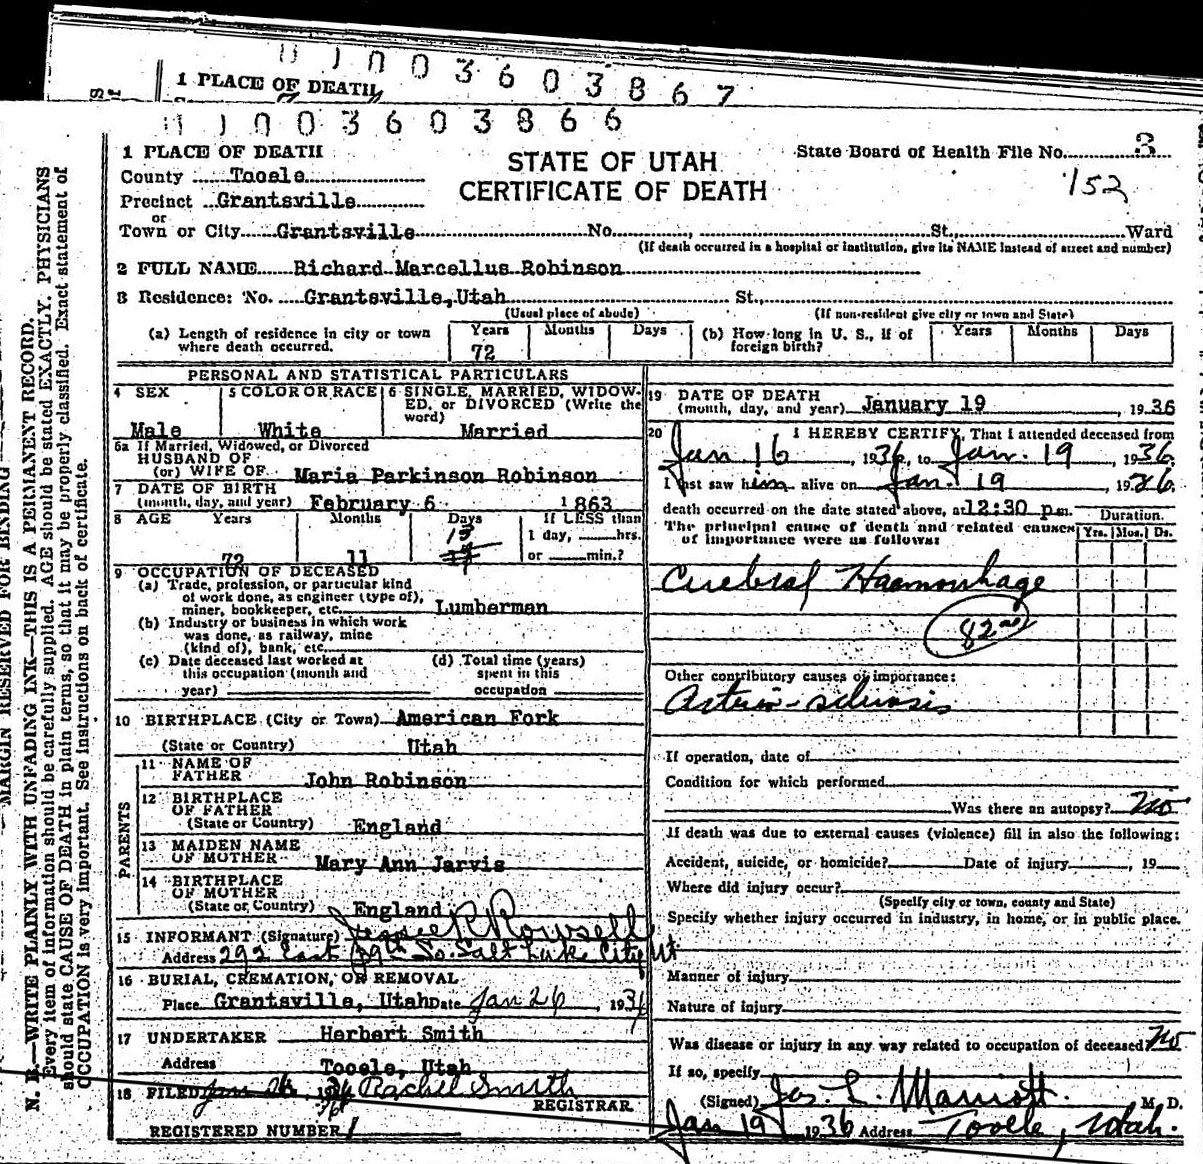 1 PLACE OF DEATH
1 1 0 0 3 6 0 3 8 6 7
1 1 0 0 3 6 0 3 8 6 6
MARGIN RESERVED FOR BINDING
N. B.—WRITE PLAINLY WITH UNFADING INK—THIS IS A PERMANENT RECORD.
Every item of information should be carefully supplied. AGE should be stated EXACTLY. PHYSICIANS
should state CAUSE OF DEATH in plain terms, so that it may be properly classified. Exact statement of
OCCUPATION is very important. See instructions on back of certificate.
1 PLACE OF DEATH
STATE OF UTAH
CERTIFICATE OF DEATH
State Board of Health File No. 3
152
County Tooele
Precinct Grantsville
or
Town or City Grantsville No. , St., Ward
(If death occurred in a hospital or institution, give its NAME instead of street and number)
2 FULL NAME Richard Marcellus Robinson
3 Residence: No. Grantsville, Utah St.,
(Usual place of abode) (If non-resident give city or town and State)
(a) Length of residence in city or town where death occurred. Years 72 Months Days
(b) How long in U. S., if of foreign birth? Years Months Days
PERSONAL AND STATISTICAL PARTICULARS
4 SEX Male
5 COLOR OR RACE White
6 SINGLE, MARRIED, WIDOWED, or DIVORCED (Write the word) Married
6a If Married, Widowed, or Divorced
HUSBAND OF
(or) WIFE OF Maria Parkinson Robinson
7 DATE OF BIRTH
(month, day, and year) February 6 1863
8 AGE Years 72 Months 11 Days 13
If LESS than
1 day, hrs.
or min.?
9 OCCUPATION OF DECEASED
(a) Trade, profession, or particular kind
of work done, as engineer (type of),
miner, bookkeeper, etc. Lumberman
(b) Industry or business in which work
was done, as railway, mine
(kind of), bank, etc.
(c) Date deceased last worked at
this occupation (month and
year)
(d) Total time (years)
spent in this
occupation
10 BIRTHPLACE (City or Town) American Fork
(State or Country) Utah
PARENTS
11 NAME OF
FATHER John Robinson
12 BIRTHPLACE
OF FATHER
(State or Country) England
13 MAIDEN NAME
OF MOTHER Mary Ann Jarvis
14 BIRTHPLACE
OF MOTHER
(State or Country) England
15 INFORMANT (Signature) Jennie R Rowsell
Address 292 East 39th So. Salt Lake City Ut
16 BURIAL, CREMATION, OR REMOVAL
Place Grantsville, Utah Date Jan 26, 1936
17 UNDERTAKER Herbert Smith
Address Tooele, Utah
18 FILED Jan 26, 1936 Rachel Smith
REGISTRAR
REGISTERED NUMBER 1
19 DATE OF DEATH
(month, day, and year) January 19, 1936
20 I HEREBY CERTIFY, That I attended deceased from
Jan 16, 1936, to Jan. 19, 1936.
I last saw him alive on Jan. 19, 1936.
death occurred on the date stated above, at 12:30 p.m.
The principal cause of death and related causes
of importance were as follows:
Duration.
Yrs. Mos. Ds.
Cerebral Haemorrhage
82
Other contributory causes of importance:
Arterio-sclerosis
If operation, date of
Condition for which performed
Was there an autopsy? No
If death was due to external causes (violence) fill in also the following:
Accident, suicide, or homicide? Date of injury , 19
Where did injury occur?
(Specify city or town, county and State)
Specify whether injury occurred in industry, in home, or in public place.
Manner of injury
Nature of injury
Was disease or injury in any way related to occupation of deceased? No
If so, specify
(Signed) Jas. L. Marriott. M. D.
Jan 19 1936 Address Tooele, Utah.